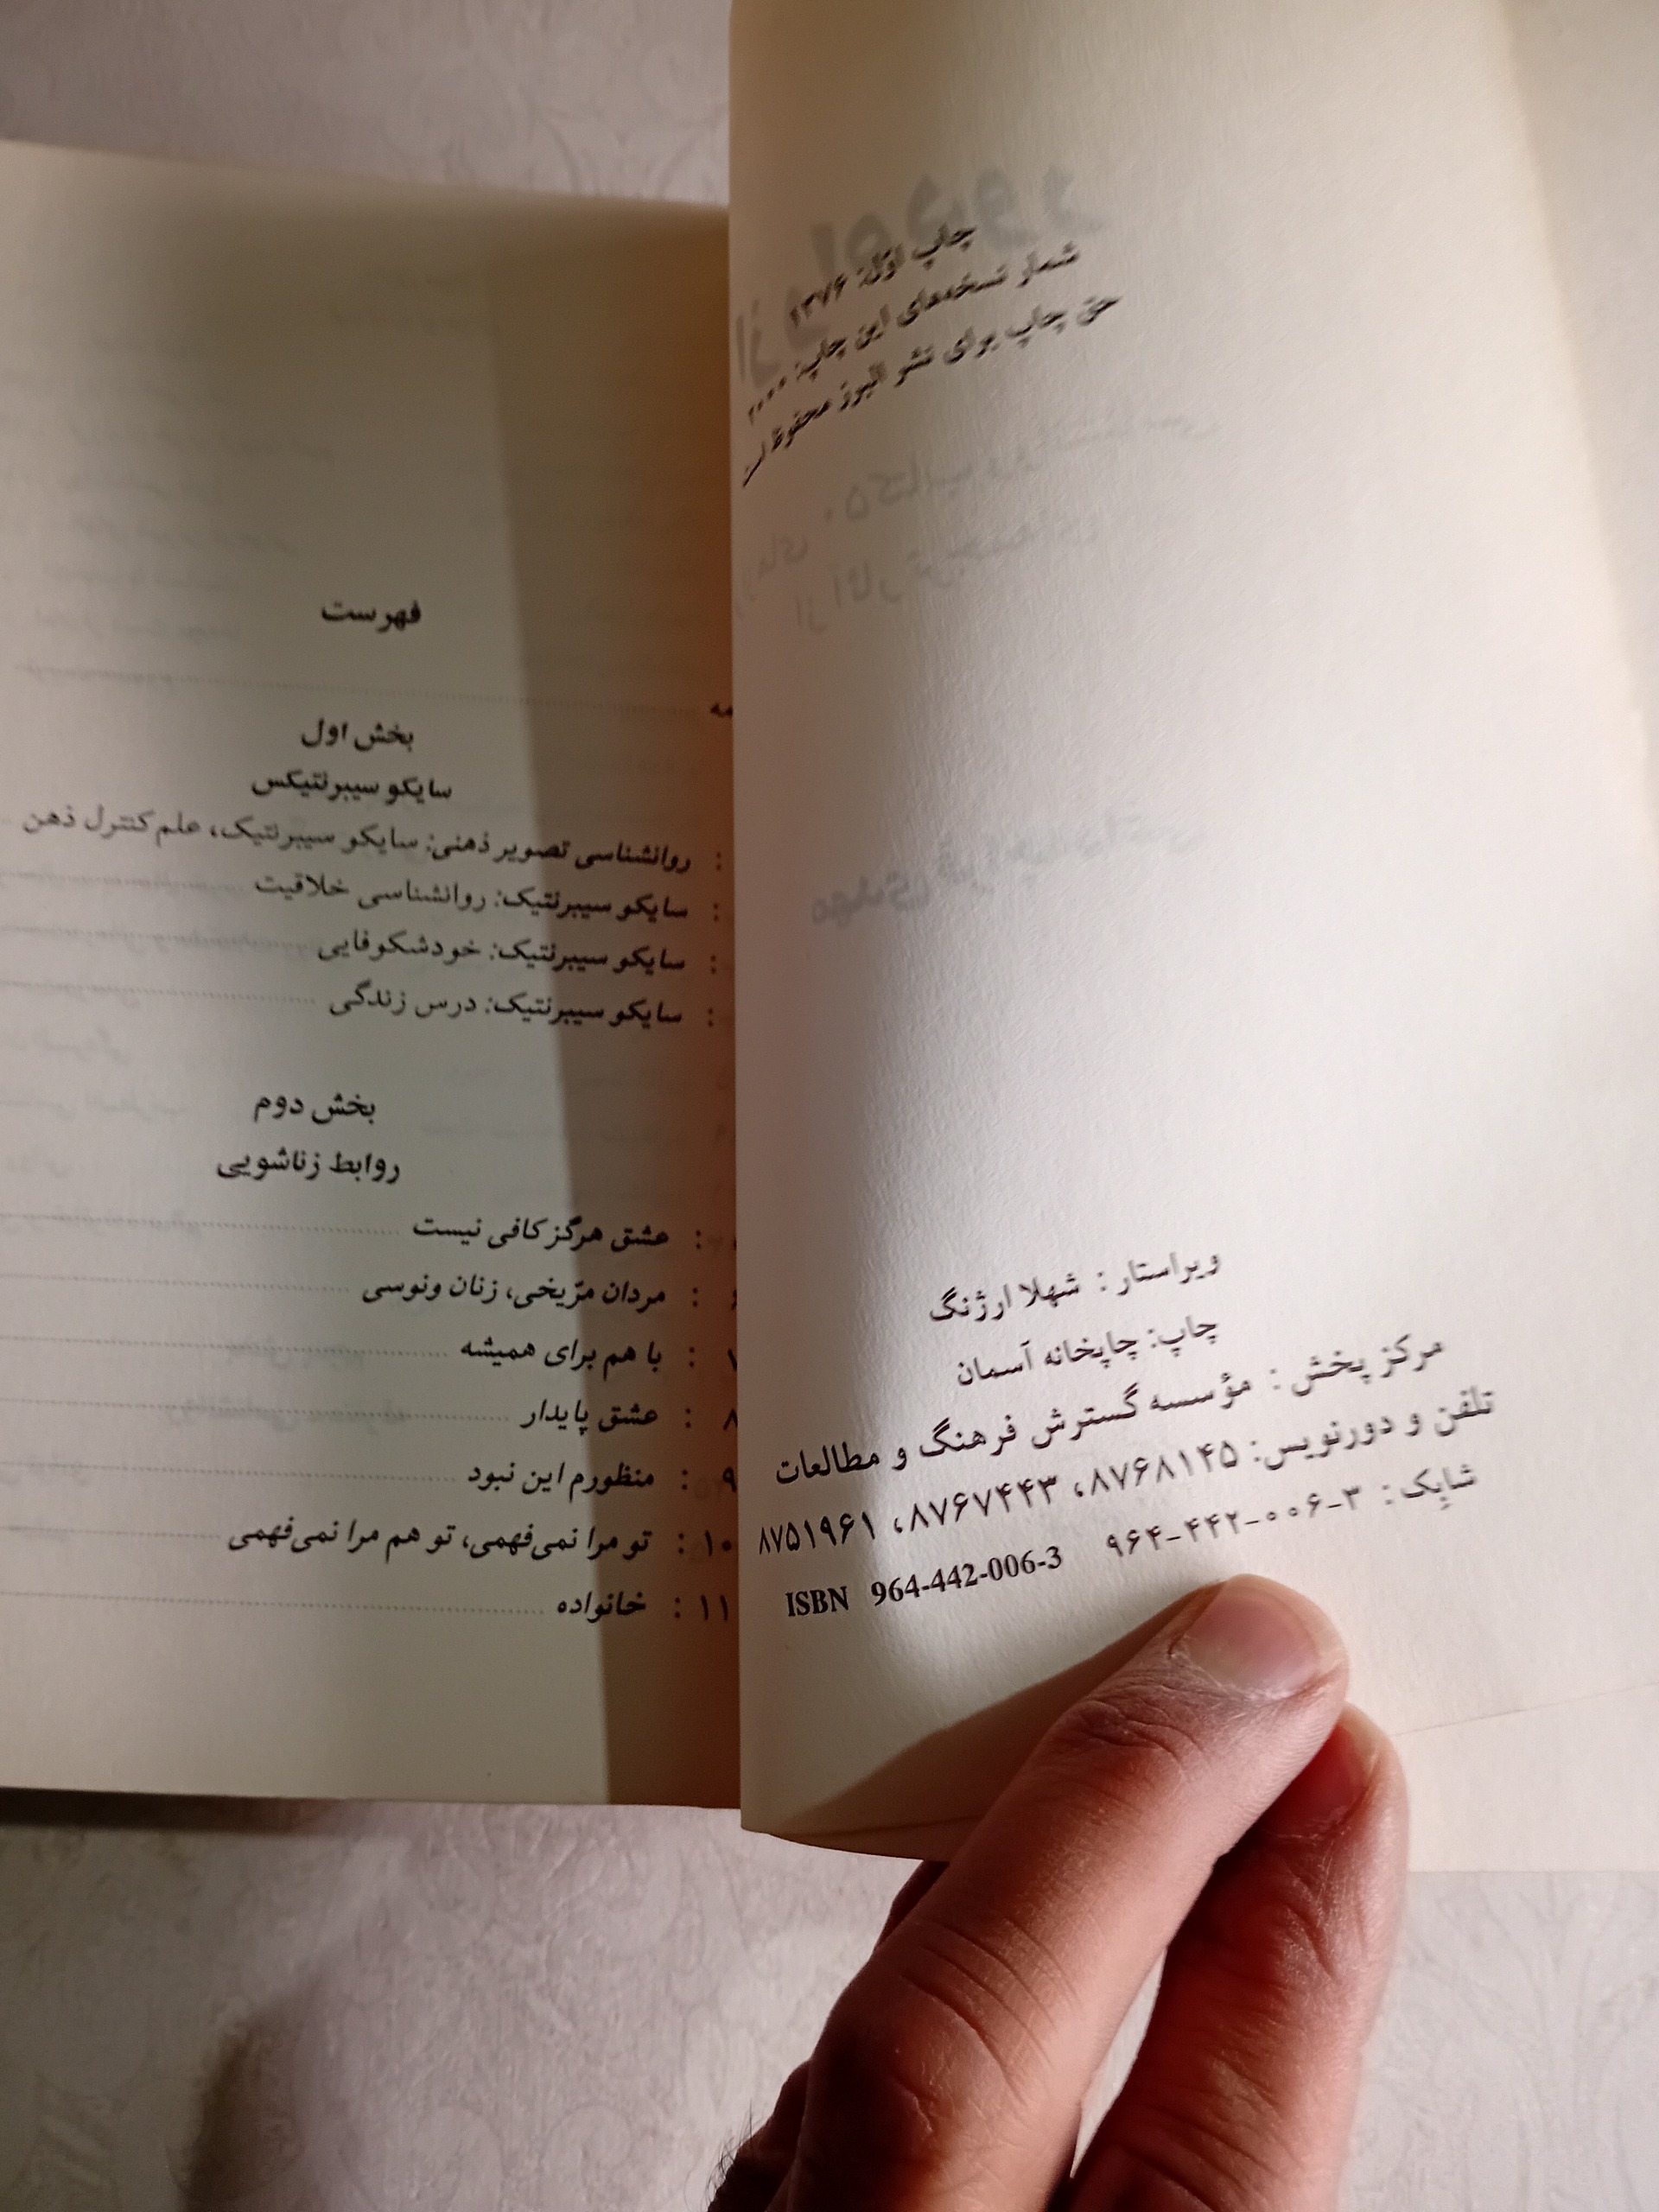 چاپ اوّل: ۱۳۷۶
شمار نسخه‌های این چاپ: ۲۰۰۰
حق چاپ برای نشر البرز محفوظ است
ویراستار : شهلا ارژنگ
چاپ: چاپخانه آسمان
مرکز پخش : مؤسسه گسترش فرهنگ و مطالعات
تلفن و دورنویس: ۸۷۶۸۱۴۵، ۸۷۶۷۴۴۳، ۸۷۵۱۹۶۱
شابِک : ۳-۰۰۶-۴۴۲-۹۶۴
ISBN 964-442-006-3
فهرست
بخش اول
سایکو سیبرنتیکس
: روانشناسی تصویر ذهنی: سایکو سیبرنتیک، علم کنترل ذهن
: سایکو سیبرنتیک: روانشناسی خلاقیت
: سایکو سیبرنتیک: خودشکوفایی
: سایکو سیبرنتیک: درس زندگی
بخش دوم
روابط زناشویی
: عشق هرگز کافی نیست
۶ : مردان مرّیخی، زنان ونوسی
۷ : با هم برای همیشه
۸ : عشق پایدار
۹ : منظورم این نبود
۱۰ : تو مرا نمی‌فهمی، تو هم مرا نمی‌فهمی
۱۱ : خانواده